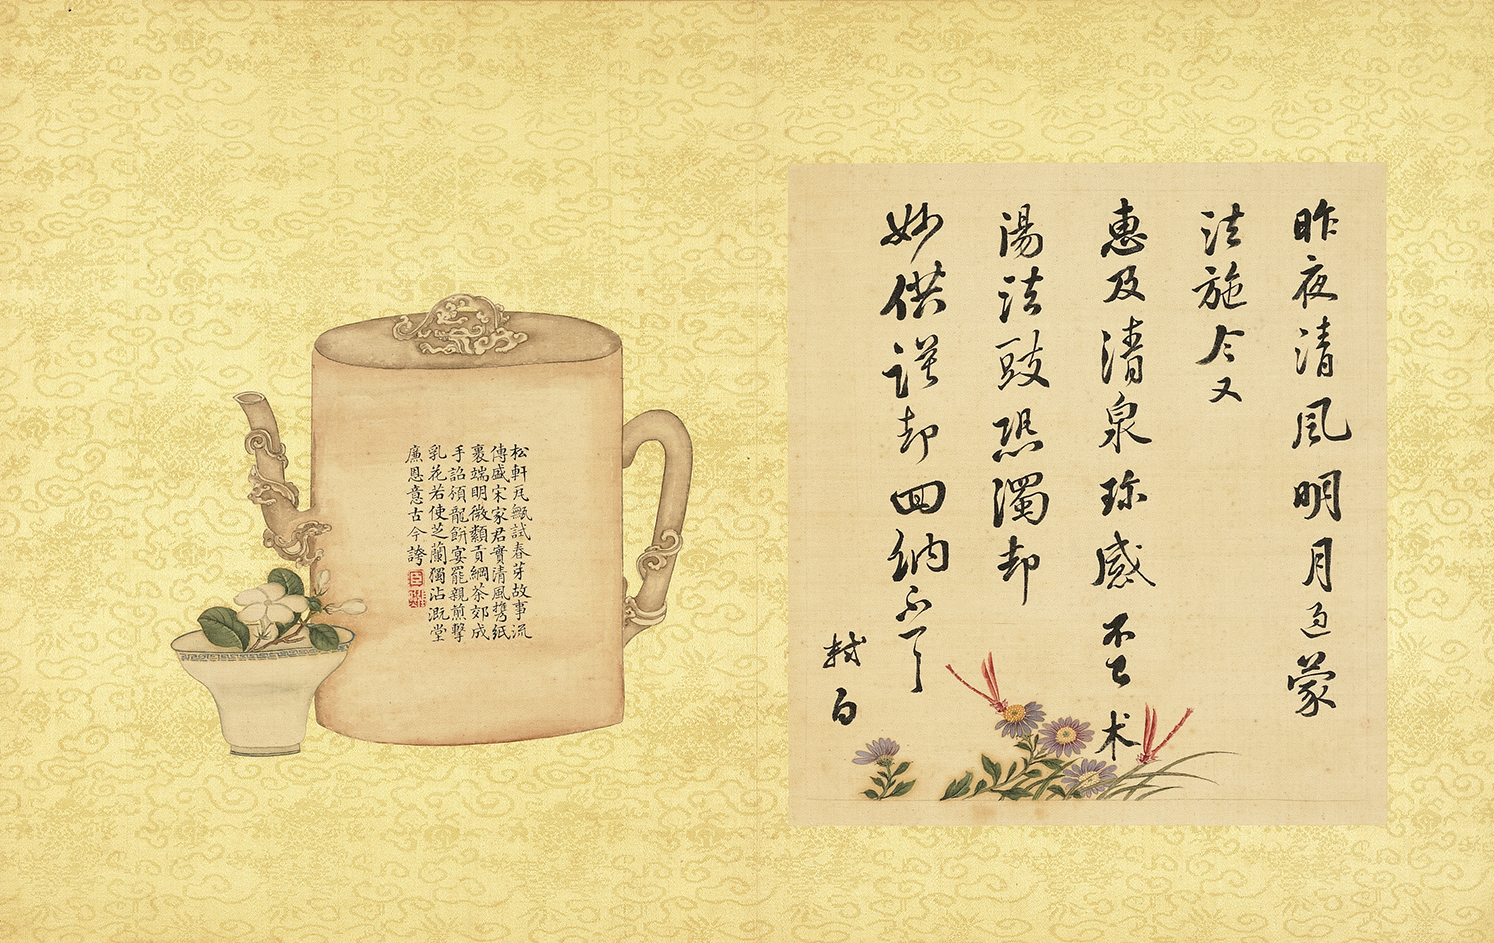 昨夜清風明月過蒙
法施今又
惠及清泉珎感不已术
湯法豉恐濁却
妙供謹却回納不
軾白
松軒瓦甌試春芽故事流
傳盛宋家君實清風携紙
裹端明微纇貢綱茶郊成
手詔頒龍餅宴罷親煎擊
乳花若使芝蘭獨沾溉堂
廉恩意古今誇
臣